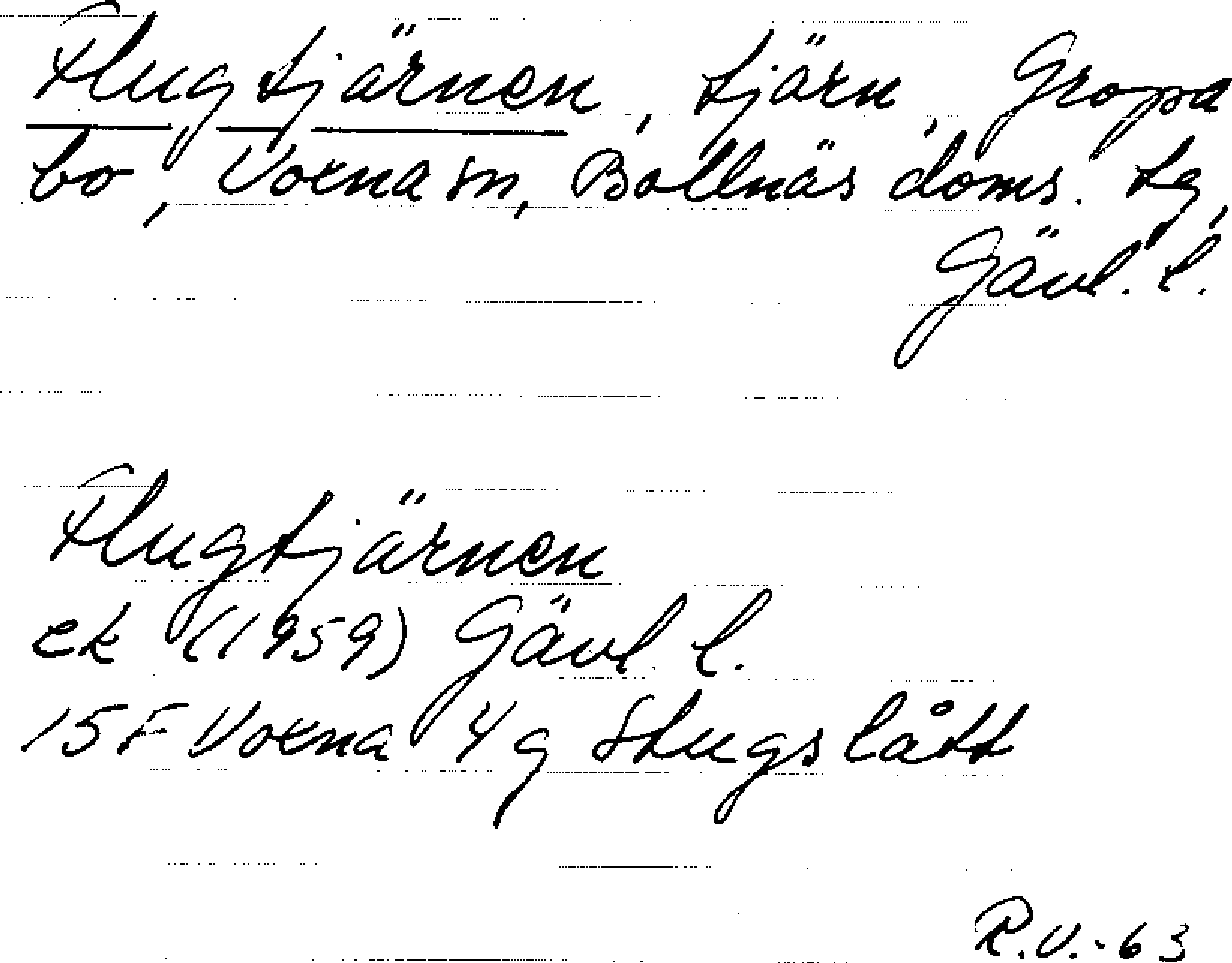 Flugtjärnen, tjärn, Gropa
bo, Voxna sn, Bollnäs doms. tg,
Gävl. l.
Flugtjärnen
ek (1959) Gävl. l.
15F Voxna 4g Stugslått
R.V.-63